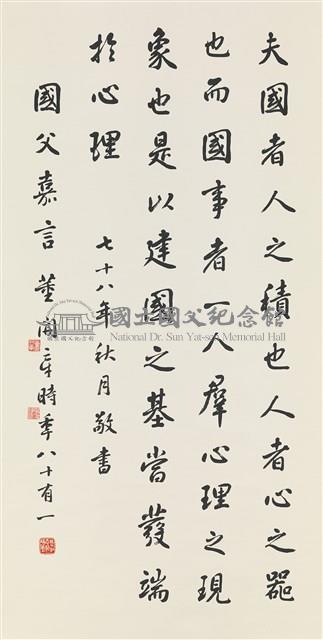 夫國者人之積也人者心之器
也而國事者一人羣心理之現
象也是以建國之基當發端
於心理
七十八年秋月敬書
國父嘉言 董開章時年八十有一
國立國父紀念館
National Dr. Sun Yat-sen Memorial Hall